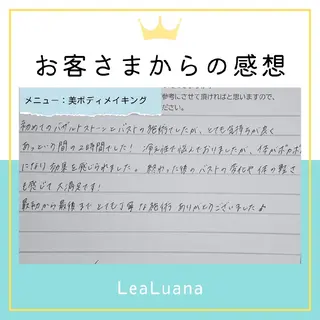 お客さまからの感想
メニュー：美ボディメイキング
参考にさせて頂ければと思いますので、
ださい。
初めてのバザルトストーンとバストの施術でしたが、とても気持ちが良く
あっという間の2時間でした！ 冷え性で悩んでおりましたが、体がポカポカ
になり効果を感じられました。終わった後のバストの変化や体の軽さ
も感じて大満足です！
最初から最後までとても丁寧な施術 ありがとうございました♪
LeaLuana